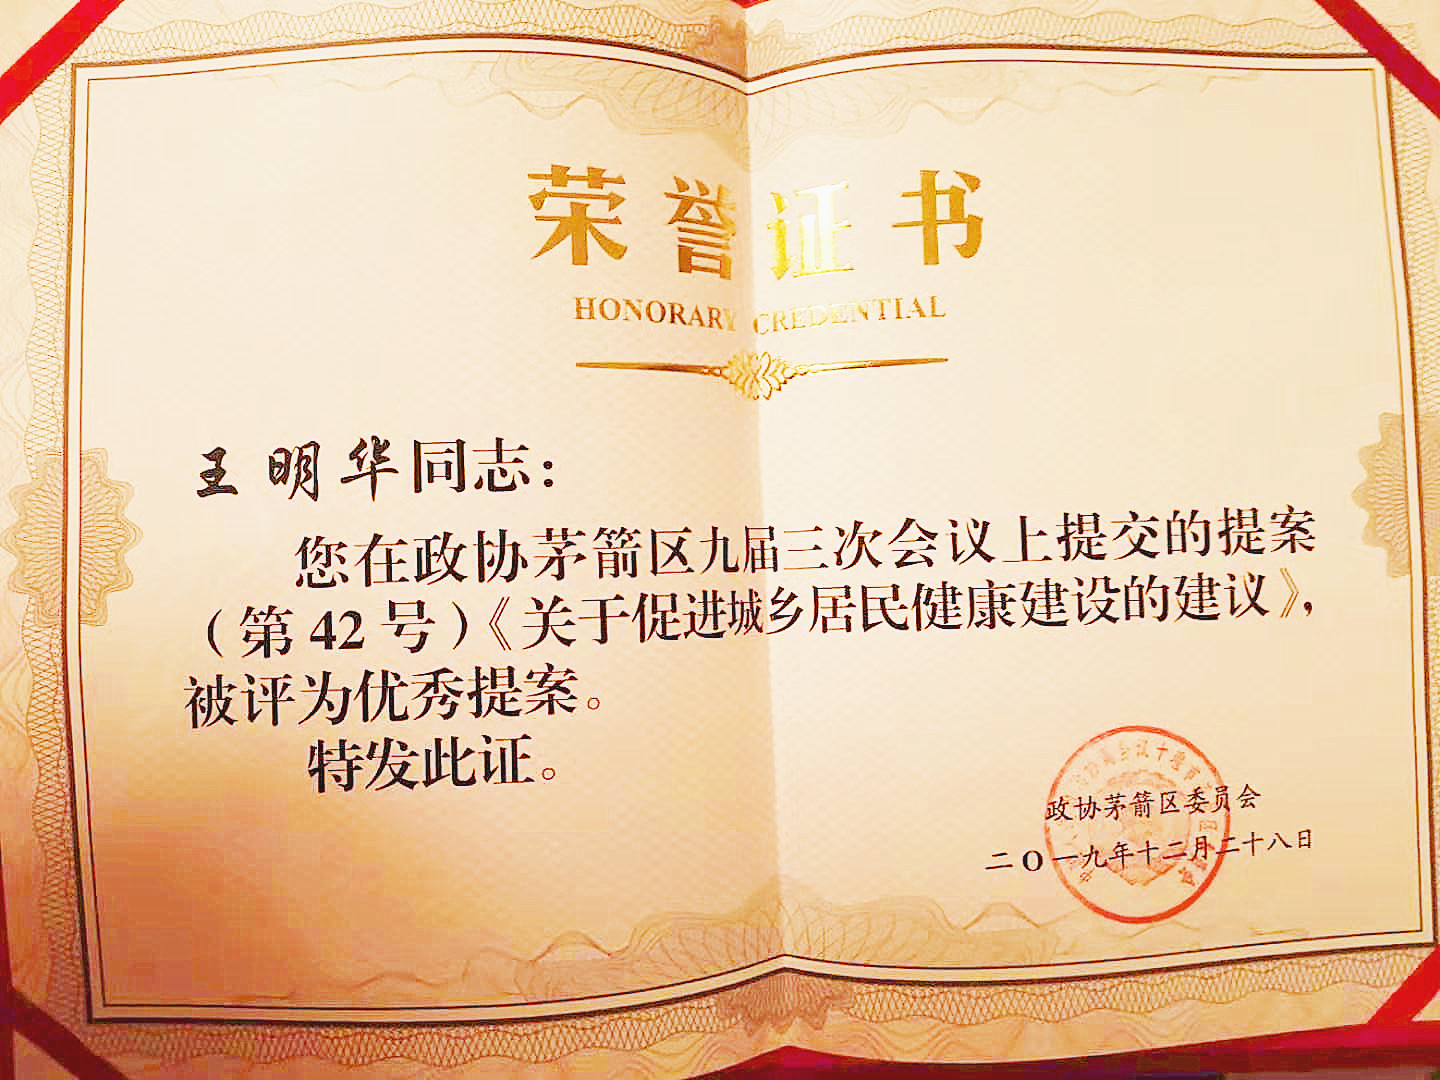 荣誉证书
HONORARY CREDENTIAL
王明华同志：
您在政协茅箭区九届三次会议上提交的提案
（第42号）《关于促进城乡居民健康建设的建议》，
被评为优秀提案。
特发此证。
政协茅箭区委员会
二O一九年十二月二十八日